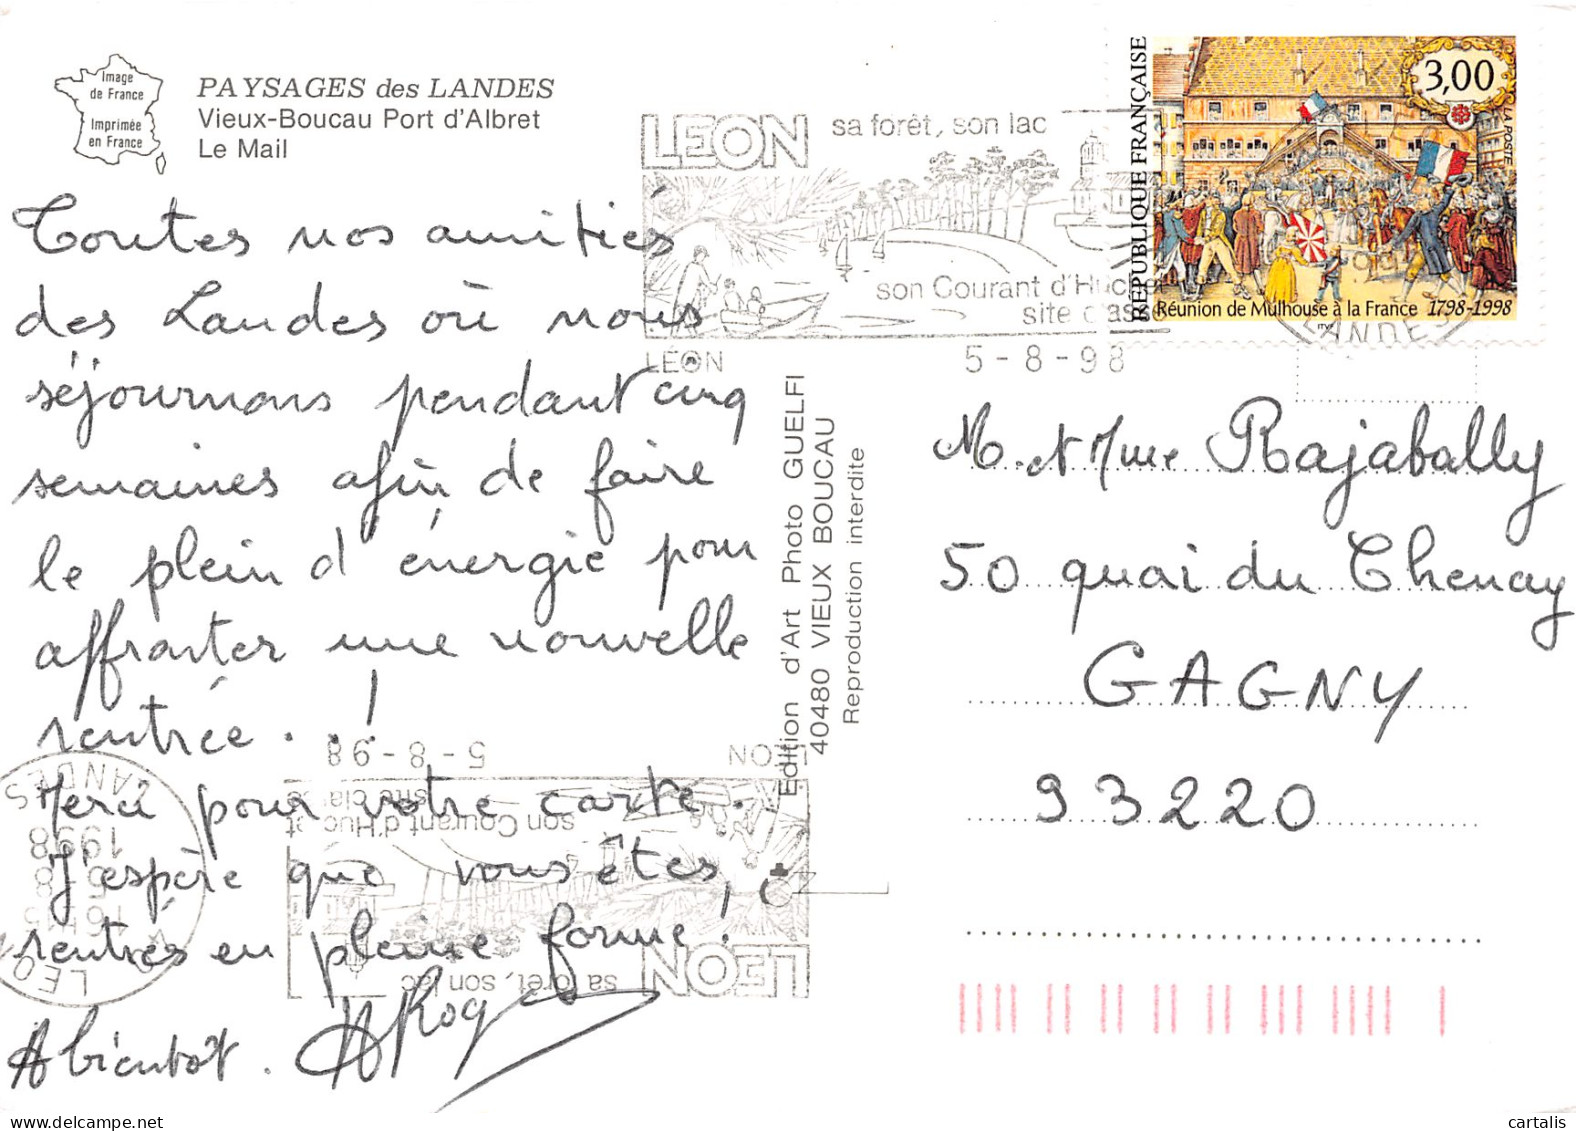 Image
de France
Imprimée
en France
PAYSAGES des LANDES
Vieux-Boucau Port d'Albret
Le Mail
LEON
sa forêt, son lac
son Courant d'Huchet
site classé
LÉON
5-8-98
LANDES
RÉPUBLIQUE FRANÇAISE
3,00
LA POSTE
Réunion de Mulhouse à la France 1798-1998
ITVF
Toutes nos amitiés
des Landes où nous
séjournons pendant cinq
semaines afin de faire
le plein d'énergie pour
affronter une nouvelle
rentrée...!
Merci pour votre carte.
J'espère que vous êtes
rentrés en pleine forme!
A bientôt.
Edition d'Art Photo GUELFI
40480 VIEUX BOUCAU
Reproduction interdite
M. et Mme Rajabally
50 quai du Chenay
GAGNY
93220
LEON
5-8-98
son Courant d'Huchet
site classé
sa forêt, son lac
LEON
LANDES
1998
5-8
16H15
LEON
cartalis